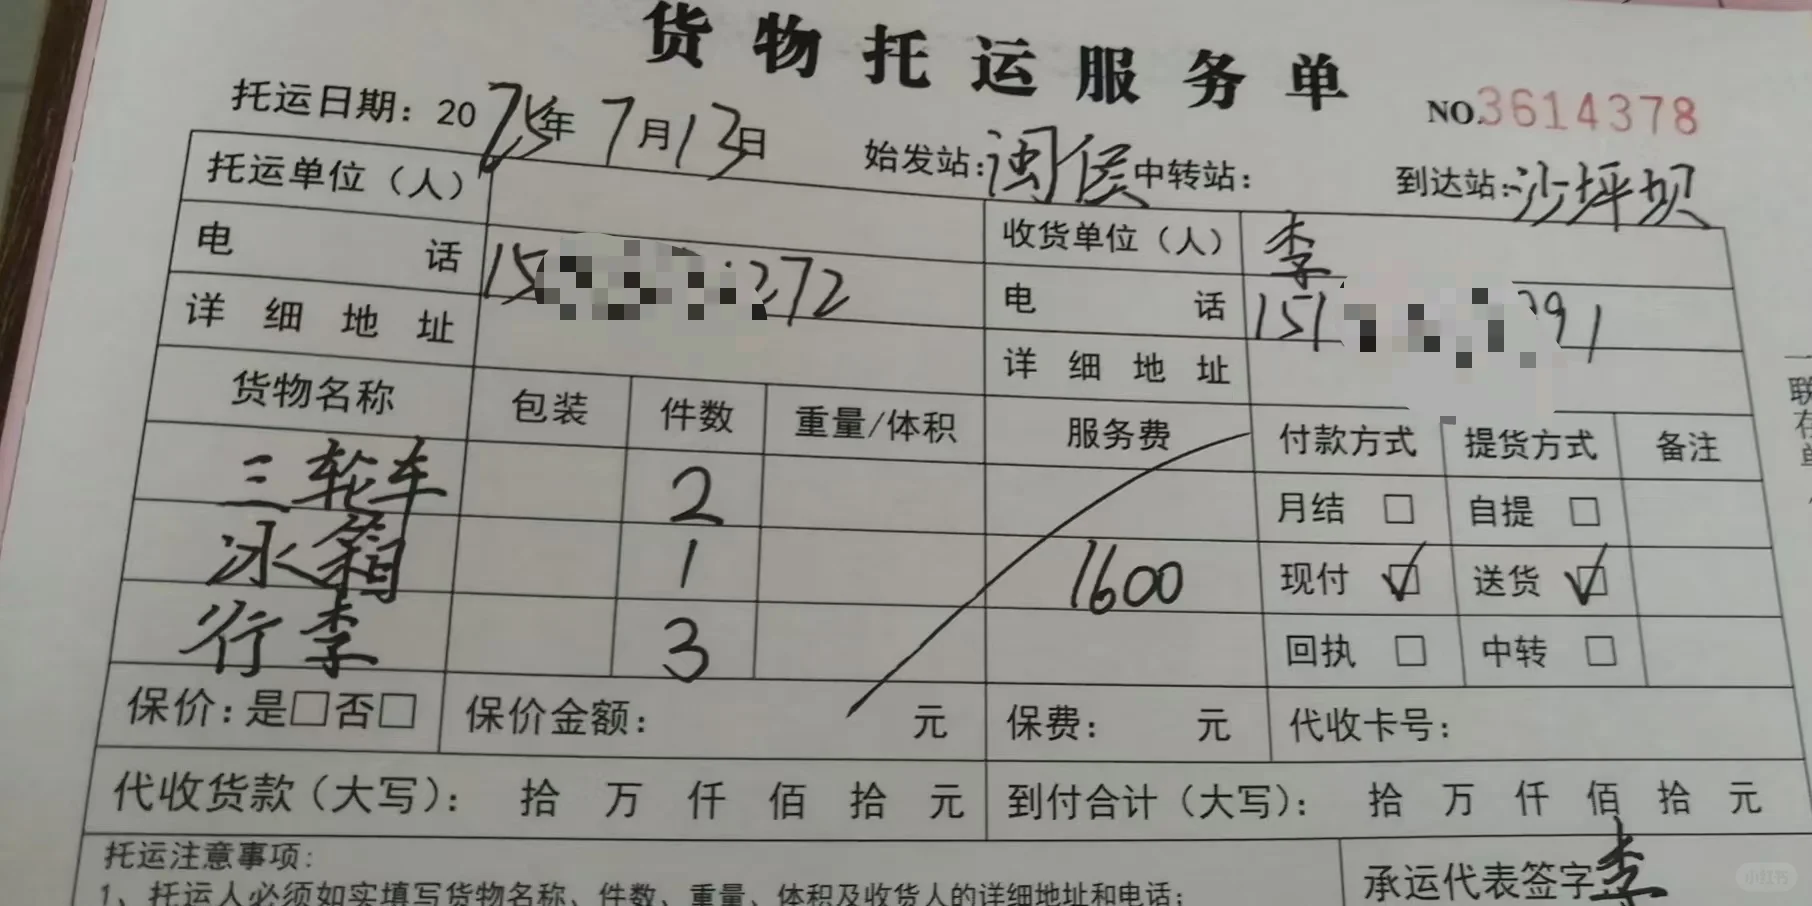 货物托运服务单
托运日期：2025年7月13日 始发站：闽侯 中转站： 到达站：沙坪坝 NO.3614378
托运单位（人） 收货单位（人） 李
电话 15 272 电话 151 391
详细地址 详细地址
货物名称 包装 件数 重量/体积 服务费 付款方式 提货方式 备注
三轮车 2 月结 □ 自提 □
冰箱 1 1600 现付 ☑ 送货 ☑
行李 3 回执 □ 中转 □
保价：是□否□ 保价金额： 元 保费： 元 代收卡号：
代收货款（大写）： 拾 万 仟 佰 拾 元 到付合计（大写）： 拾 万 仟 佰 拾 元
托运注意事项：
1、托运人必须如实填写货物名称、件数、重量、体积及收货人的详细地址和电话；
承运代表签字：李
一联存单
小红书